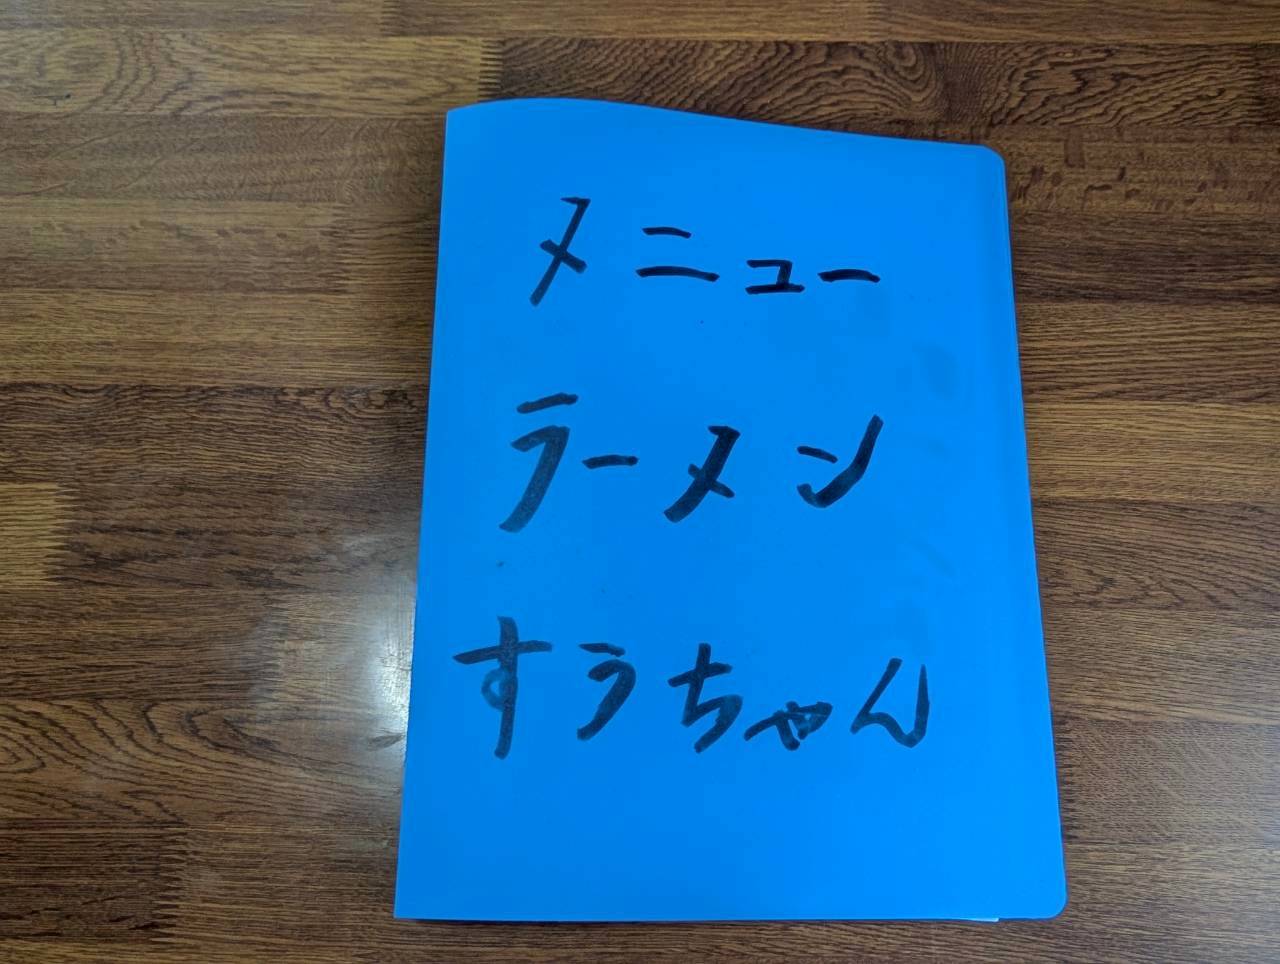 メニュー
ラーメン
すうちゃん